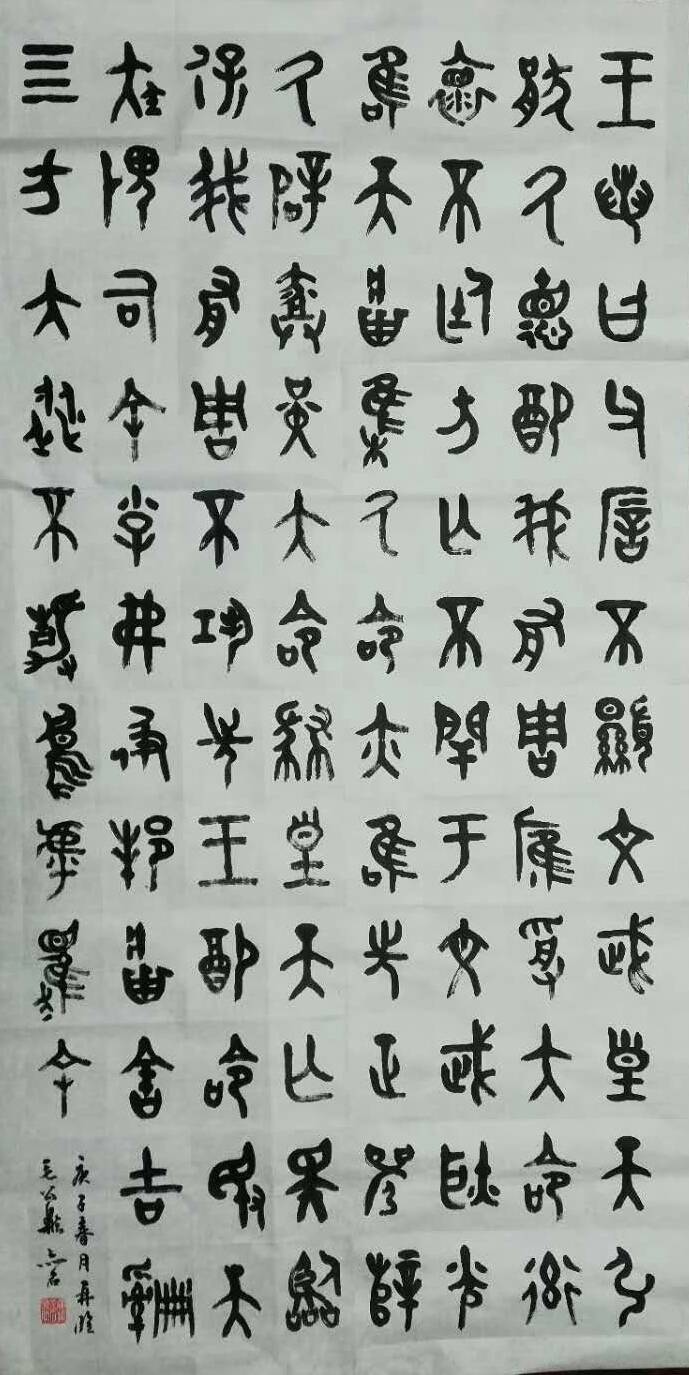 王若曰父厝不顯文武皇天引
猒厥德配我有周膺受大命率
褱不廷方亡不閈于文武耿光
唯天將集厥命亦唯先正襄辥
厥辟𢍰堇大命肆皇天亡斁臨
保我有周不巩先王配命敃天
疾畏司余小子弗彶邦將害吉𤔲
四方大縱不靜烏虖趯余
庚子春月再臨
毛公鼎